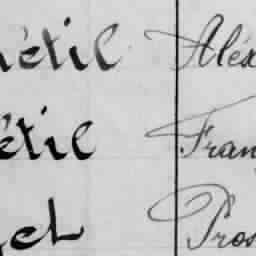 nétil Aléx
étil Fran
gel Pros